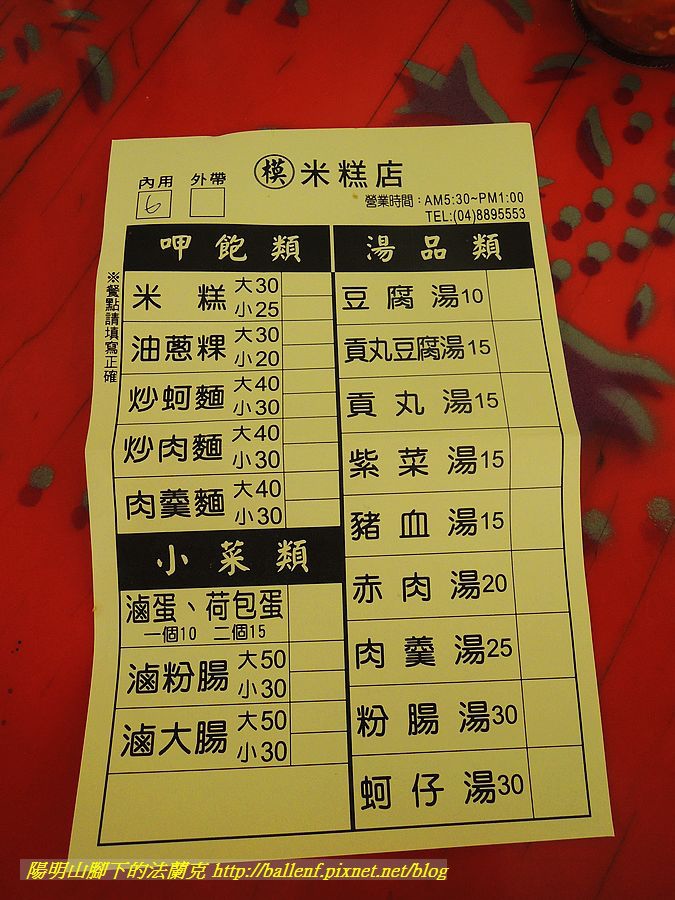 內用 外帶
6
模 米糕店
營業時間：AM5:30~PM1:00
TEL:(04)8895553
※餐點請填寫正確
呷飽類
米糕 大30 小25
油蔥粿 大30 小20
炒蚵麵 大40 小30
炒肉麵 大40 小30
肉羹麵 大40 小30
小菜類
滷蛋、荷包蛋
一個10 二個15
滷粉腸 大50 小30
滷大腸 大50 小30
湯品類
豆腐湯10
貢丸豆腐湯15
貢丸湯15
紫菜湯15
豬血湯15
赤肉湯20
肉羹湯25
粉腸湯30
蚵仔湯30
陽明山腳下的法蘭克 http://ballenf.pixnet.net/blog